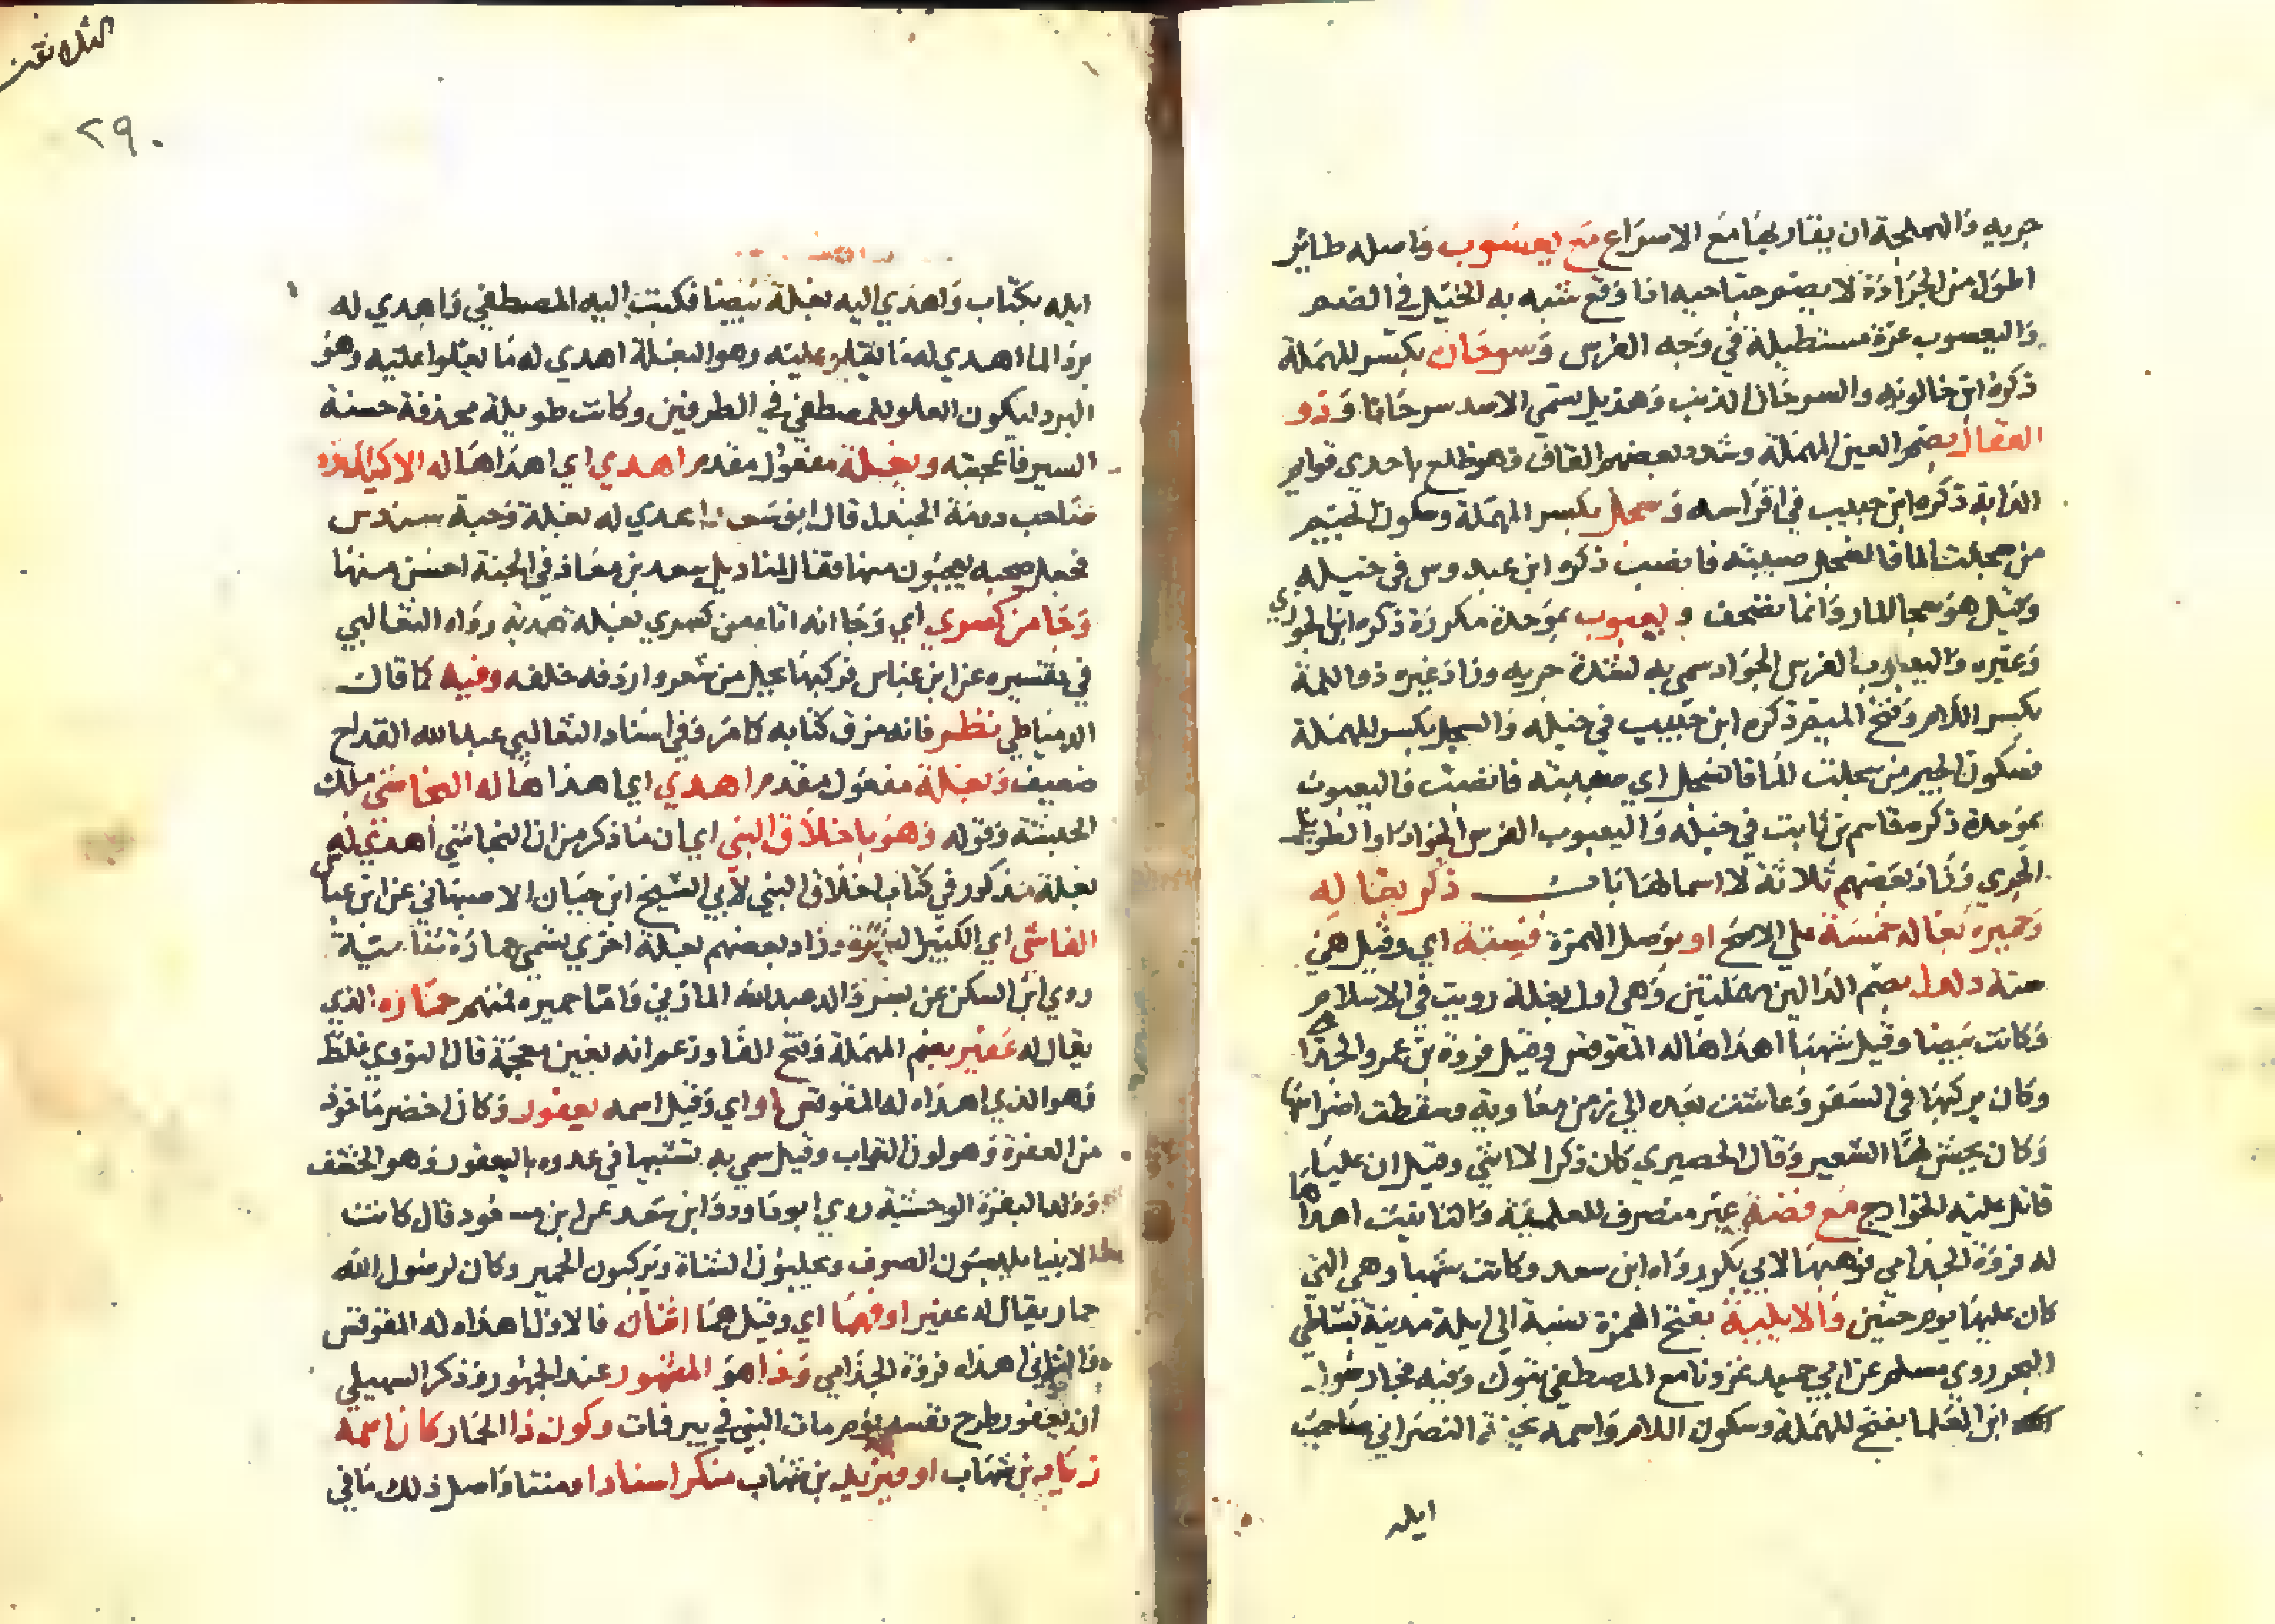 جريه والهملجة ان يقاربها مع الاسراع مع يعسوب واصله طاير
اطول من الجرادة لا يضم جناحيه اذا وقع شبه به الخيل في الضمر
واليعسوب غرة مستطيلة في وجه الفرس وسرحان بكسر المهملة
ذكره ابن خالويه والسرحان الذيب وهذيل تسمي الاسد سرحانا وذو
العقال بضم العين المهملة وشدد بعضهم القاف وهو ظلع باحدي قوايم
الدابة ذكره ابن حبيب في افراسه وسجل بكسر المهملة وسكون الجيم
من سجلت الما فانسجل صببته فانصب ذكره ابن عبدوس في خيله
وقيل هو سحا المار وانما تصحف و يعبوب بموحدة مكررة ذكره ابن الجوزي
وغيره واليعبوب الفرس الجواد سمي به لشدة جريه وزاد غيره ذو اللمة
بكسر اللام وفتح الميم ذكره ابن حبيب في خيله والسجل بكسر المهملة
وسكون الجيم من سجلت الما فانسجل اي صببته فانصب واليعبوب
بموحدة ذكره قاسم بن ثابت في خيله واليعبوب الفرس الجواد او الطويل
الجري وزاد بعضهم ثلاثة لا اسما لها ثابت ذكر بغاله
وحميره بغاله خمسة علي الاصح او بوصل الهمزة فستة اي وقيل هن
ستة دلدل بضم الدالين مهملتين وهي اول بغلة رويت في الاسلام
وكانت بيضا وقيل شهبا اهداها له المقوقس وقيل فروة بن عمرو الجذا
وكان يركبها في السفر وعاشت بعده الي زمن معاوية وسقطت اضراسها
وكان يجش لها الشعير وقال الحصيري كان ذكرا لا انثي وقيل ان عليا
قاتل عليه الخوارج مع فضة غير منصرف للعلمية والتانيث اهداها
له فروة الجذامي فوهبها لابي بكر رواه ابن سعد وكانت شهبا وهي التي
كان عليها يوم حنين والايلية بفتح الهمزة نسبة الي ايلة مدينة بشاطي
البحر روي مسلم عن ابي حميد غزونا مع المصطفي تبوك وفيه فجا رسول
ابن العلما بفتح المهملة وسكون اللام واسمه يحنة النصراني صاحب
ايله
الثلاثة
٢٩٠
ايله بكتاب واهدي اليه بغلة بيضا فكتب اليه المصطفي واهدي له
بردا لما اهدي له ما يعلو عليه وهو البغلة اهدي له ما يعلوا عليه وهو
البرد ليكون العلو للمصطفي في الطرفين وكانت طويلة محذفة حسنة
السير فاعجبته وبغلة مفعول مقدم اهدي اي اهداها له الاكيدر
صاحب دومة الجندل قال ابن سعد اهدي له بغلة وجبة سندس
فجعل صحبه يعجبون منها فقال لمناديل سعد بن معاذ في الجنة احسن منها
وجا من كسري اي وجا انه اتاه من كسري بغلة هدية رواه الثعالبي
في تفسيره عن ابن عباس فركبها بحبل من شعر واردفه خلفه وفيه كما قال
الدمياطي نظر فانه مزق كتابه كما مر وفي اسناد الثعالبي عبد الله القداح
ضعيف وبغلة مفعول مقدم اهدي اي اهداها له النجاشي ملك
الحبشة وقوله وهو باخلاق النبي اي ان ما ذكر من ان النجاشي اهدي له
بغلة مذكور في كتاب اخلاق النبي لابي الشيخ ابن حبان الاصبهاني عن ابن عباس
الفاشي اي الكثير الشهرة وزاد بعضهم بغلة اخري تسمي حمارة شامية
روي ابن السكن عن بسر والد عبد الله المازني واما حميره فمنهم حماره الذي
يقال له عفير بضم المهملة وفتح الفا وزعم انه بغين معجمة قال النووي غلط
وهو الذي اهداه له المقوقس او اي وقيل اسمه يعفور وكان اخضر ماخوذ
من العفرة وهو لون التراب وقيل سمي به تشبيها في عدوه باليعفور وهو الخشف
وولد البقرة الوحشية روي ابو داود وابن سعد عن ابن مسعود قال كانت
الانبيا يلبسون الصوف ويحلبون الشاة ويركبون الحمير وكان لرسول الله
حمار يقال له عفير او فهما اي وقيل هما اثنان فالاول اهداه له المقوقس
والثاني اهداه فروة الجذامي وذا هو المشهور عند الجمهور وذكر السهيلي
ان يعفور طرح نفسه يوم مات النبي في بير فمات وكون ذا الحمار كان اسمه
زياد بن شهاب او يزيد بن شهاب منكر اسنادا ومتنا واصل ذلك ما في